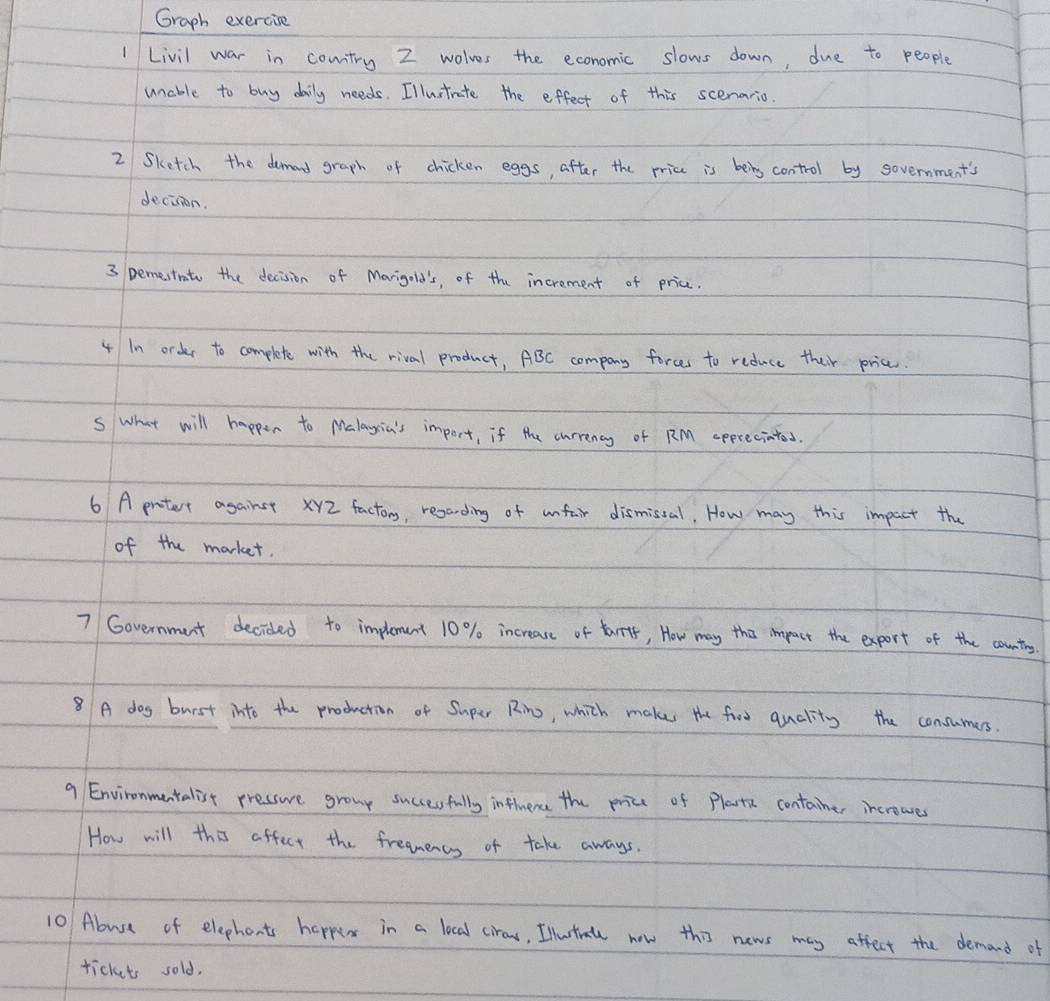 Graph exercise
1 Livil war in country Z wolves the economic slows down, due to people
unable to buy daily needs. Illustrate the effect of this scenario.
2 Sketch the demand graph of chicken eggs, after the price is being control by government's
decision.
3 Demestrate the decision of Marigold's, of the increment of price.
4 In order to complete with the rival product, ABC company forces to reduce their prices.
5 What will happen to Malaysia's import, if the currency of RM appreciated.
6 A protest against XYZ factory, regarding of unfair dismissal. How may this impact the
of the market.
7 Government decided to implement 10% increase of tariff, How may this impact the export of the country.
8 A dog burst into the production of Super Ring, which makes the food quality the consumers.
9 Environmentalist pressure group successfully influence the price of Plastic container increases
How will this affect the frequency of take aways.
10 Abuse of elephants happens in a local circus, Illustrate how this news may affect the demand of
tickets sold.